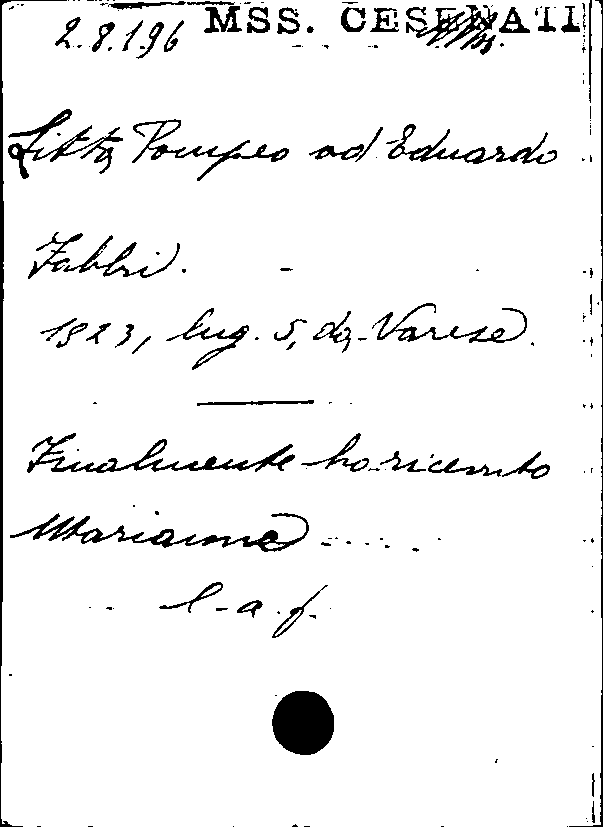 2.8.1.96 MSS. CESENATI
Litta, Pompeo ad Eduardo
Fabbri.
1823, lug. 5, da Varese.
Finalmente ho ricevuto
Marianna .....
l. a. f.